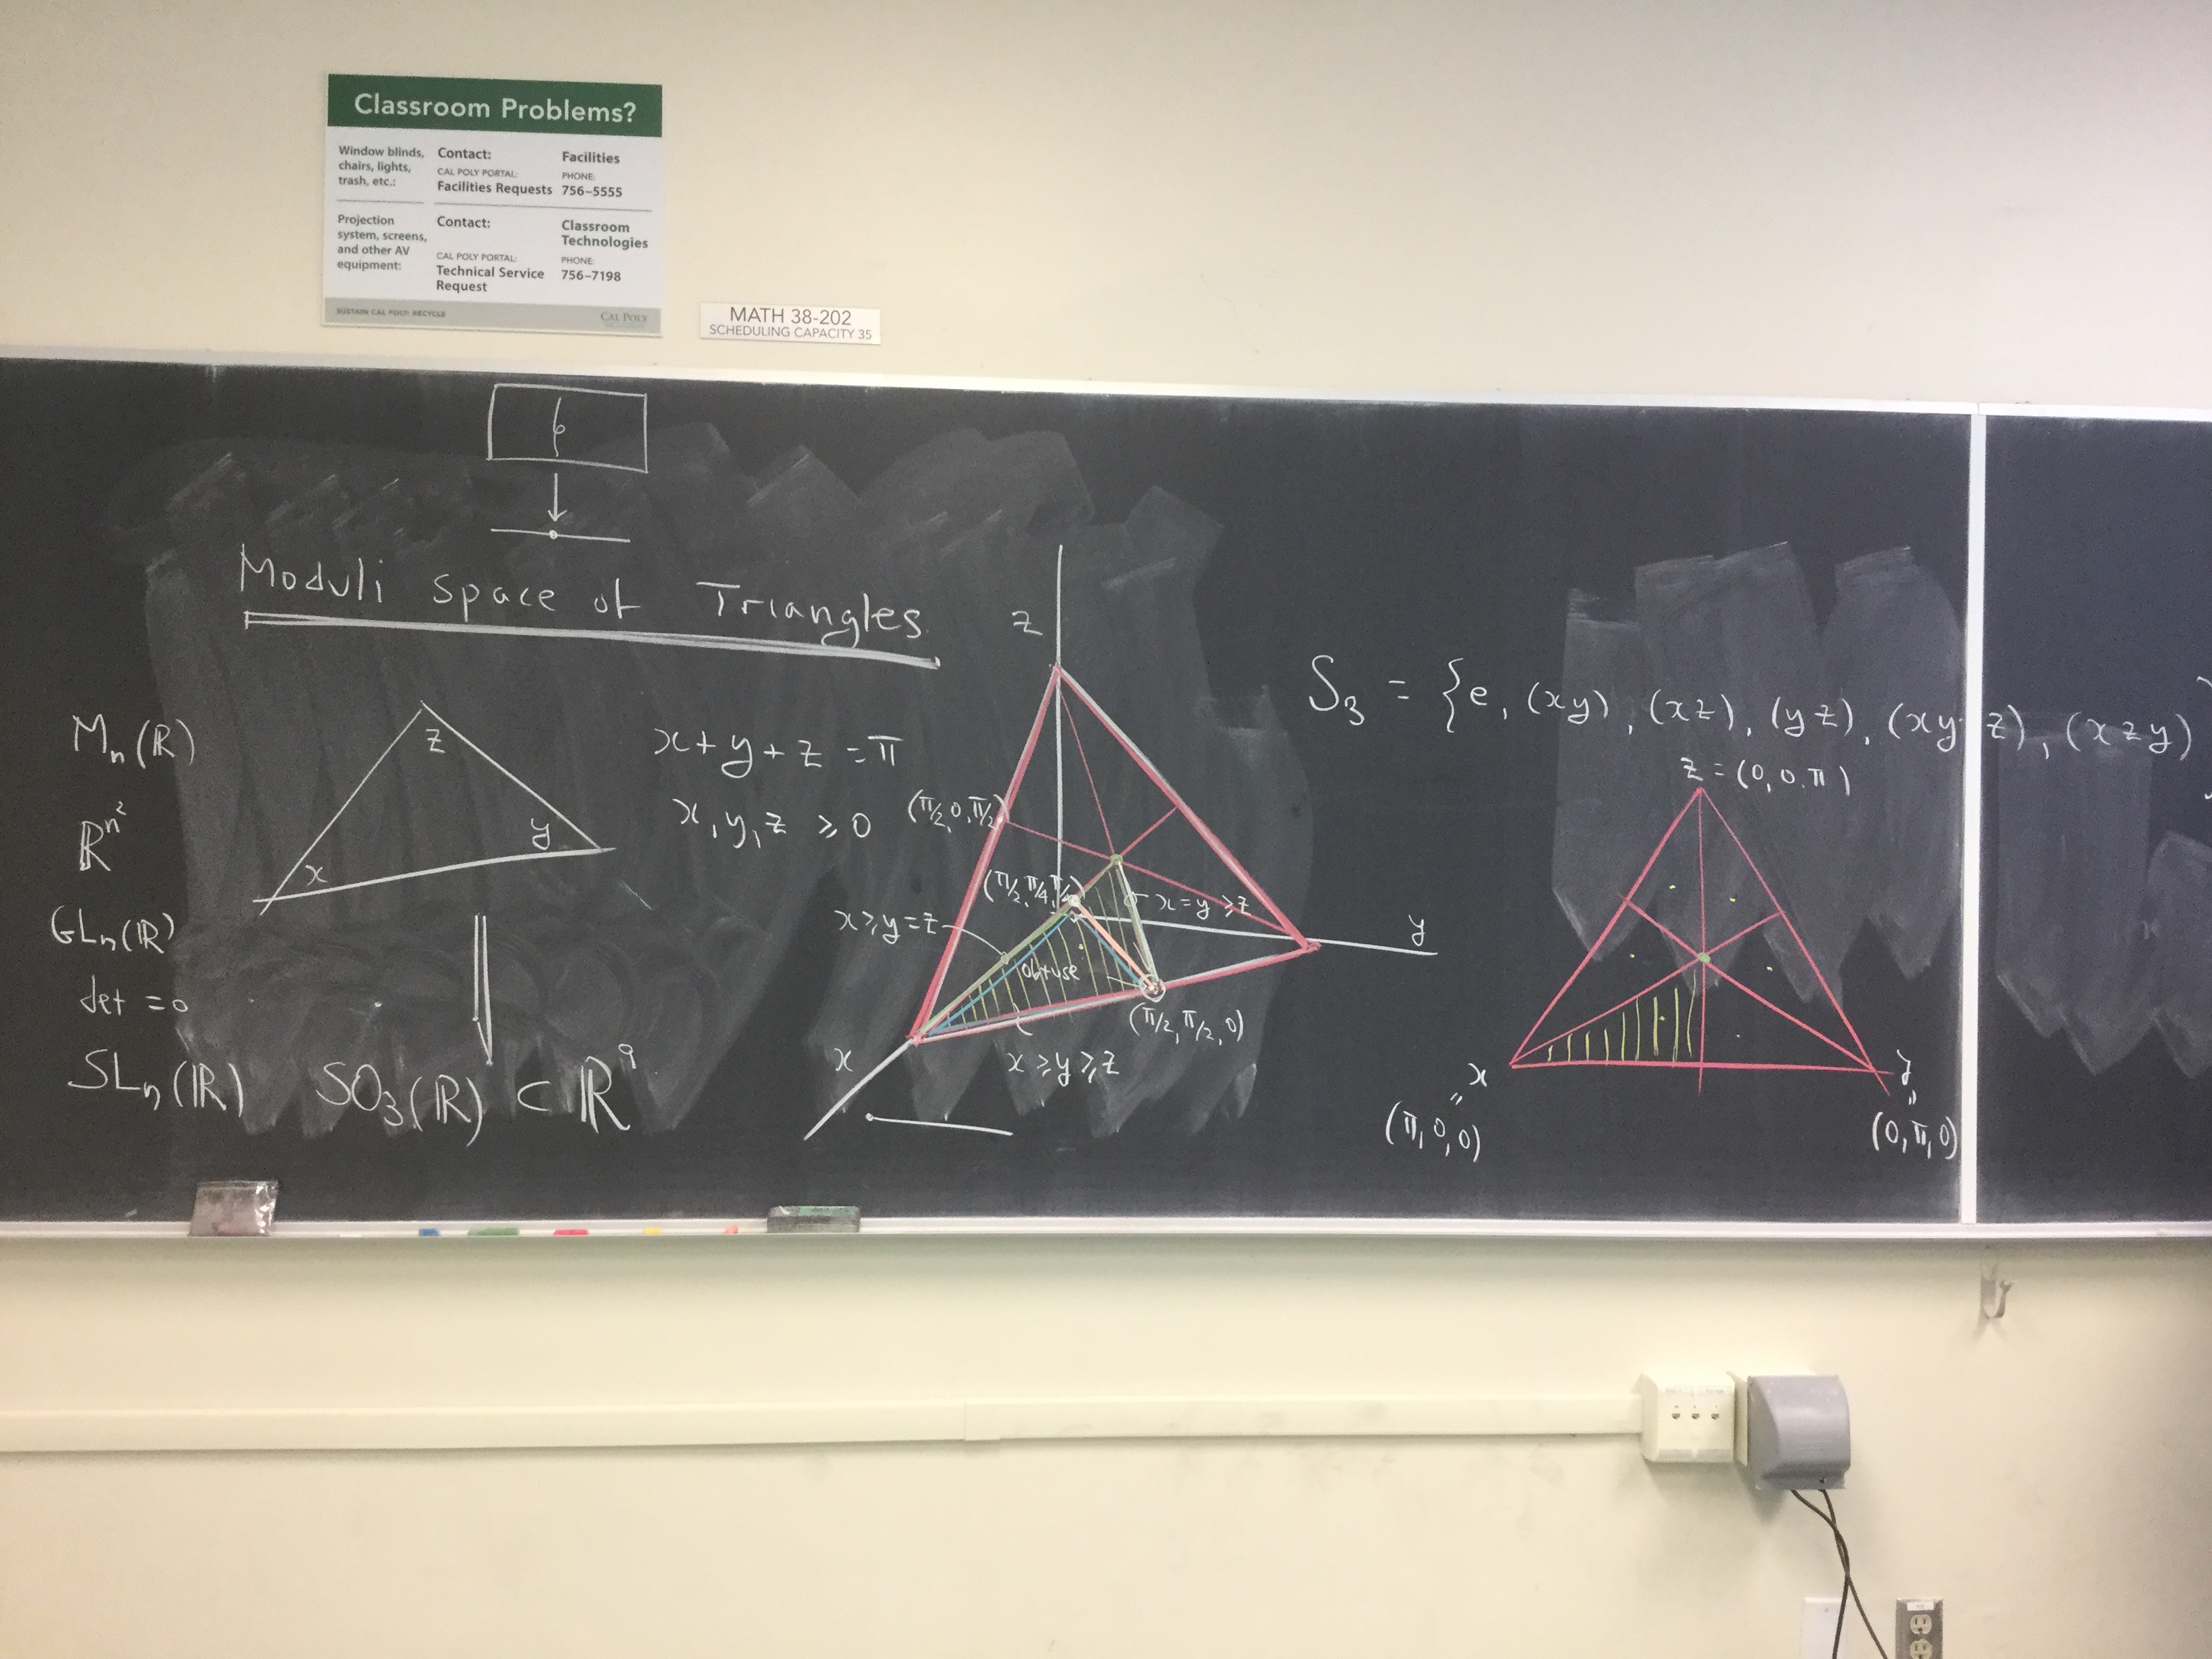 Classroom Problems?
Window blinds, chairs, lights, trash, etc.:
Contact:
CAL POLY PORTAL:
Facilities Requests
Facilities
PHONE:
756-5555
Projection system, screens, and other AV equipment:
Contact:
CAL POLY PORTAL:
Technical Service Request
Classroom Technologies
PHONE:
756-7198
SUSTAIN CAL POLY: RECYCLE
CAL POLY
MATH 38-202
SCHEDULING CAPACITY 35
Moduli space of Triangles
Mₙ(ℝ)
ℝ^n²
GLₙ(ℝ)
det = 0
SLₙ(ℝ)
z
y
x
SO₃(ℝ) ⊂ ℝ⁹
x + y + z = π
x, y, z ≥ 0
z
(π/2, 0, π/2)
(π/2, π/4, π/4)
x ≥ y = z
x = y ≥ z
y
obtuse
(π/2, π/2, 0)
x
x ≥ y ≥ z
S₃ = {e, (xy), (xz), (yz), (xyz), (xzy)
z = (0, 0, π)
x
=
(π, 0, 0)
y
=
(0, π, 0)